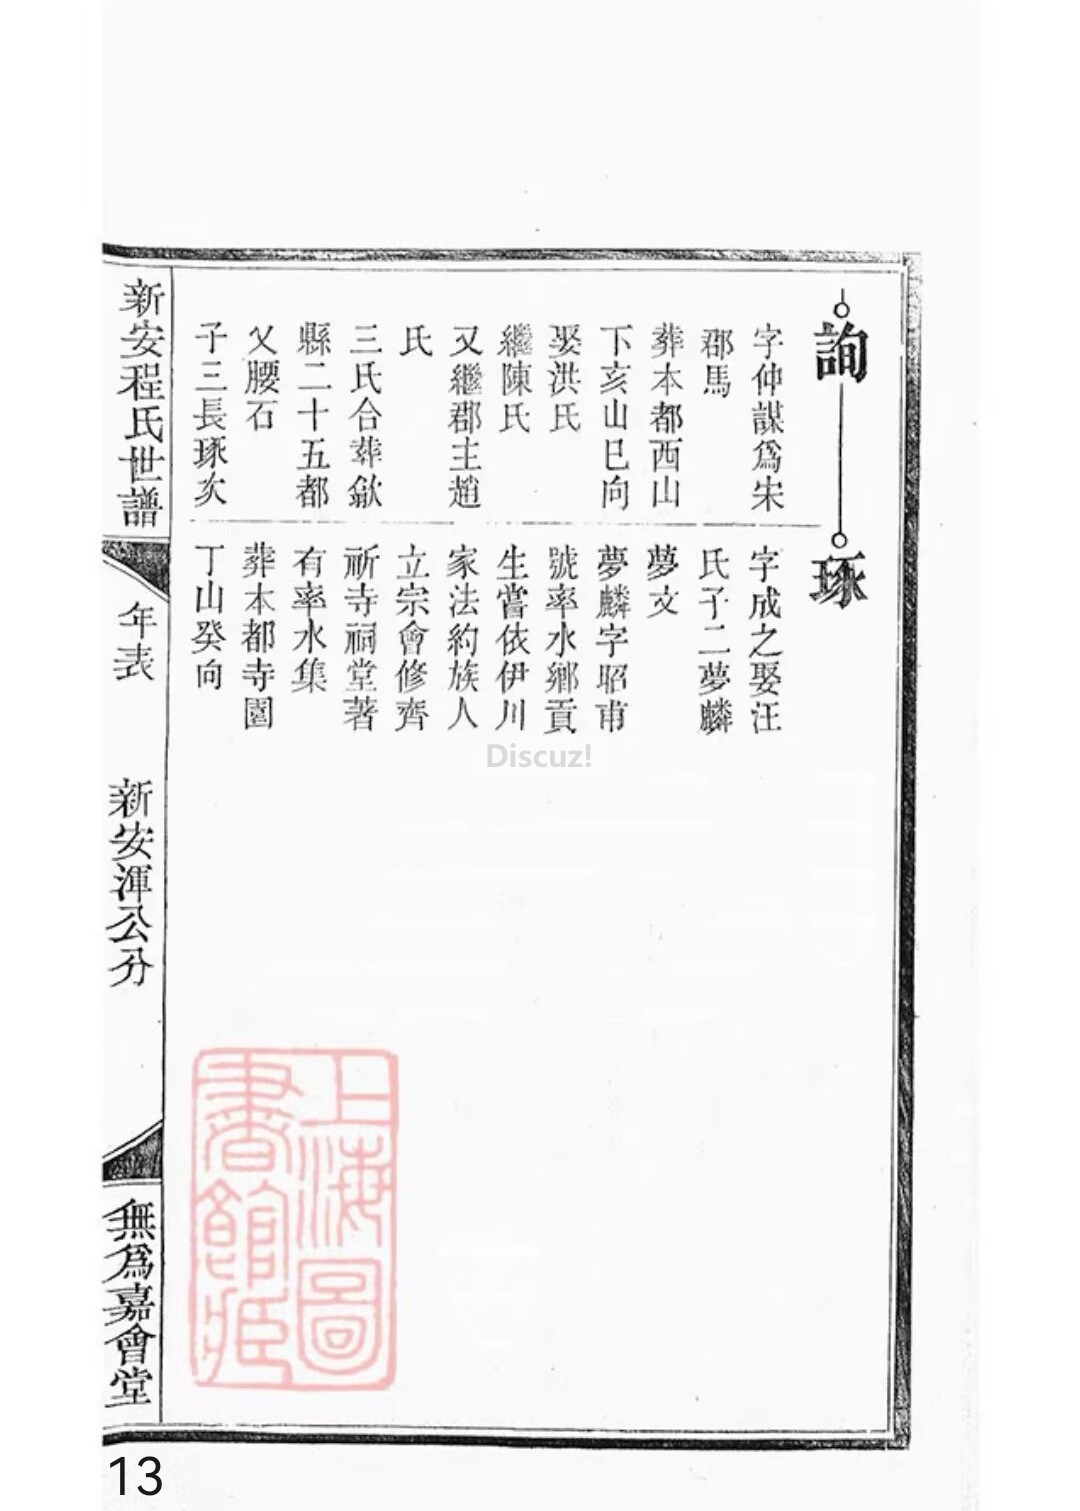 詢
字仲謀爲宋
郡馬
葬本都西山
下亥山巳向
娶洪氏
繼陳氏
又繼郡主趙
氏
三氏合葬歙
縣二十五都
乂腰石
子三長琢次
琢
字成之娶汪
氏子二夢麟
夢文
夢麟字昭甫
號率水鄉貢
生嘗依伊川
家法約族人
立宗會修齊
祈寺祠堂著
有率水集
葬本都寺園
丁山癸向
新安程氏世譜
年表
新安渾公分
無爲嘉會堂
上海圖
書館藏
Discuz!
13